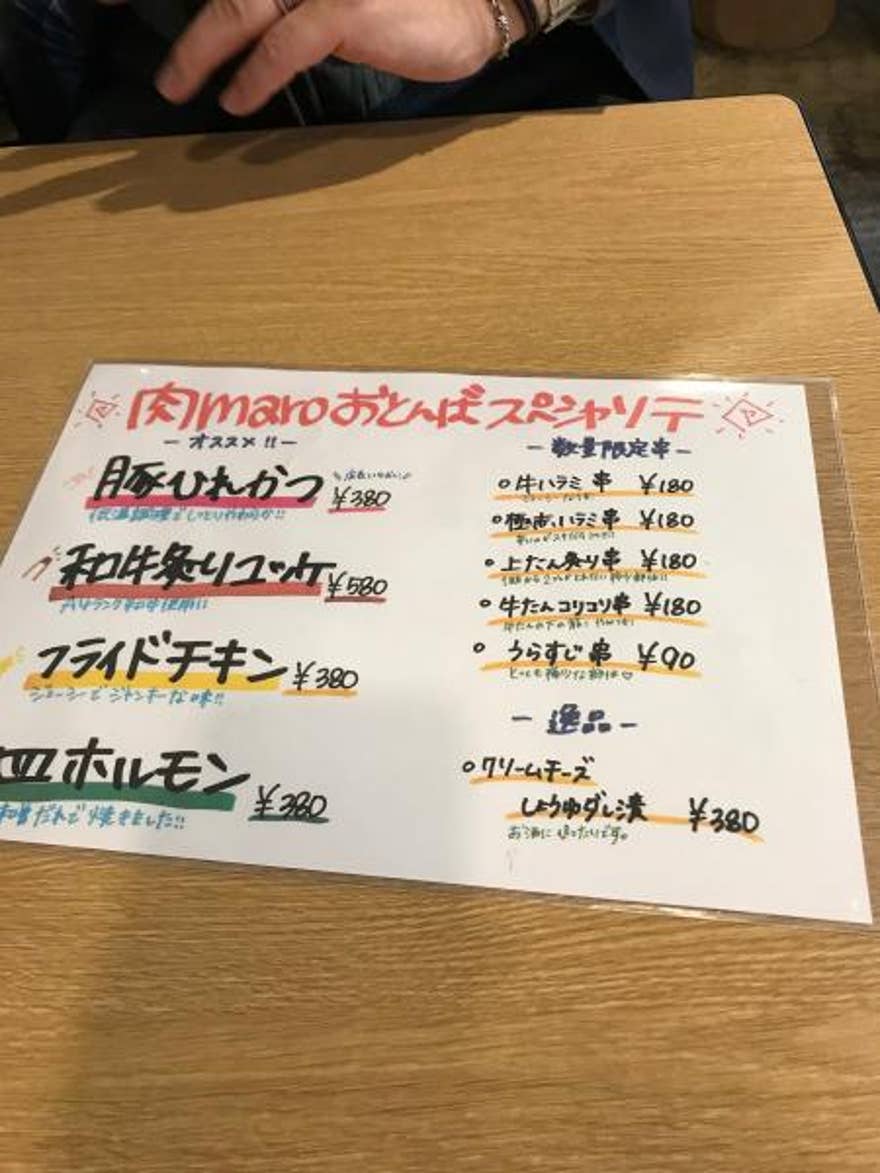 肉maroおとんばスペシャリテ
－オススメ!!－
豚ひれかつ ¥380
低温調理でしっとりやわらか!!
和牛炙りユッケ ¥580
フライドチキン ¥380
ジューシーでジャンキーな味!!
皿ホルモン ¥380
だれで焼きました!!
－数量限定串－
○牛ハラミ串 ¥180
○極南ハラミ串 ¥180
○上たん炙り串 ¥180
○牛たんコリコリ串 ¥180
○うらすじ串 ¥90
とっても稀少な部位♡
－逸品－
○クリームチーズ
しょうゆダレ漬 ¥380
お酒にぴったりです。